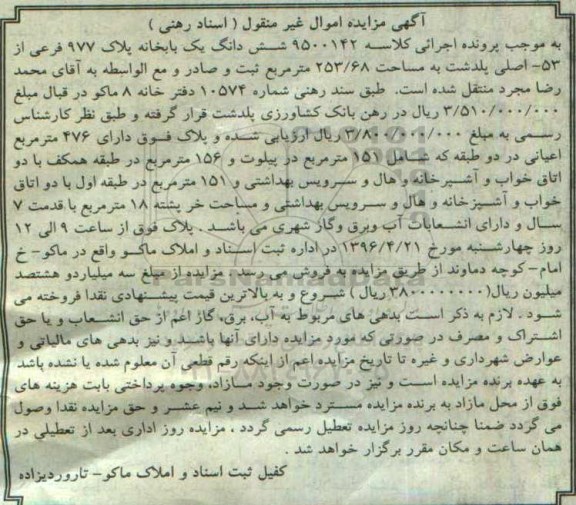 آگهی مزایده اموال غیر منقول ( اسناد رهنی )
به موجب پرونده اجرائی کلاسه ۹۵۰۰۱۴۲ شش دانگ یک بابخانه پلاک ۹۷۷ فرعی از
۵۳- اصلی پلدشت به مساحت ۲۵۳/۶۸ مترمربع ثبت و صادر و مع الواسطه به آقای محمد
رضا مجرد منتقل شده است. طبق سند رهنی شماره ۱۰۵۷۴ دفتر خانه ۸ ماکو در قبال مبلغ
۳/۵۱۰/۰۰۰/۰۰۰ ریال در رهن بانک کشاورزی پلدشت قرار گرفته و طبق نظر کارشناس
رسمی به مبلغ ۳/۸۰۰/۰۰۰/۰۰۰ ریال ارزیابی شده و پلاک فوق دارای ۴۷۶ مترمربع
اعیانی در دو طبقه که شامل ۱۵۱ مترمربع در پیلوت و ۱۵۶ مترمربع در طبقه همکف با دو
اتاق خواب و آشپزخانه و هال و سرویس بهداشتی و ۱۵۱ مترمربع در طبقه اول با دو اتاق
خواب و آشپزخانه و هال و سرویس بهداشتی و مساحت خر پشته ۱۸ مترمربع با قدمت ۷
سال و دارای انشعابات آب وبرق وگاز شهری می باشد . پلاک فوق از ساعت ۹ الی ۱۲
روز چهارشنبه مورخ ۱۳۹۶/۴/۲۱ در اداره ثبت اسناد و املاک ماکو واقع در ماکو- خ
امام- کوچه دماوند از طریق مزایده به فروش می رسد . مزایده از مبلغ سه میلیاردو هشتصد
میلیون ریال(۳۸۰۰۰۰۰۰۰۰ ریال ) شروع و به بالاترین قیمت پیشنهادی نقدا فروخته می
شود . لازم به ذکر است بدهی های مربوط به آب، برق، گاز اعم از حق انشعاب و یا حق
اشتراک و مصرف در صورتی که مورد مزایده دارای آنها باشد و نیز بدهی های مالیاتی و
عوارض شهرداری و غیره تا تاریخ مزایده اعم از اینکه رقم قطعی آن معلوم شده یا نشده باشد
به عهده برنده مزایده است و نیز در صورت وجود مازاد، وجوه پرداختی بابت هزینه های
فوق از محل مازاد به برنده مزایده مسترد خواهد شد و نیم عشر و حق مزایده نقدا وصول
می گردد ضمنا چنانچه روز مزایده تعطیل رسمی گردد ، مزایده روز اداری بعد از تعطیلی در
همان ساعت و مکان مقرر برگزار خواهد شد .
کفیل ثبت اسناد و املاک ماکو- تاروردیزاده